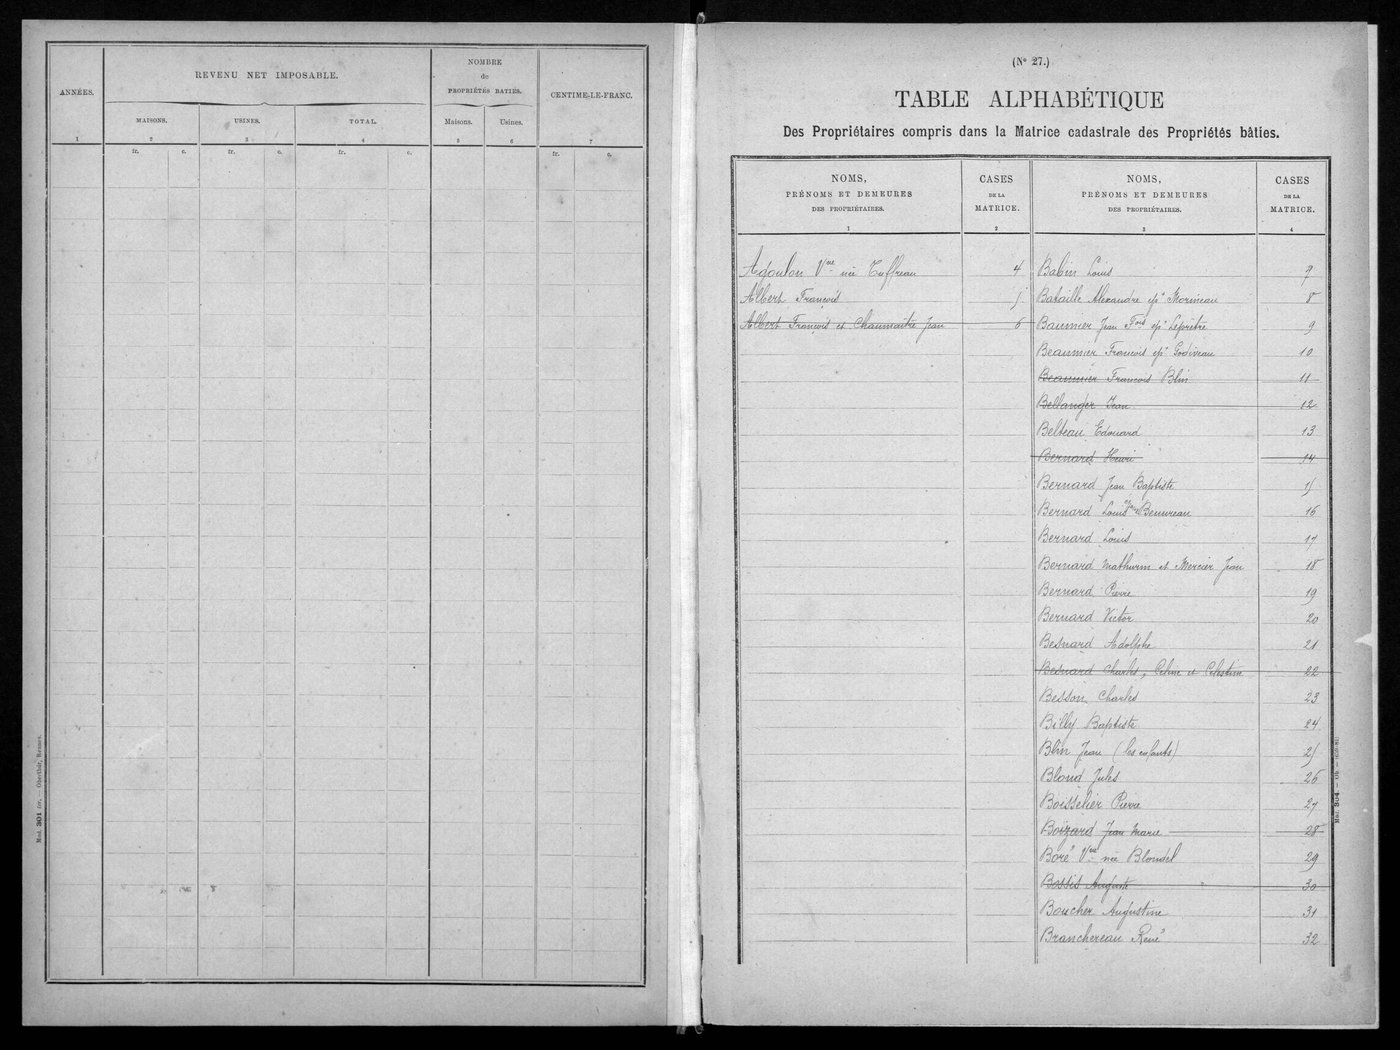 ANNÉES.
REVENU NET IMPOSABLE.
NOMBRE
de
PROPRIÉTÉS BATIES.
CENTIME-LE-FRANC.
MAISONS.
USINES.
TOTAL.
Maisons.
Usines.
1
2
3
4
5
6
7
fr. c. fr. c. fr. c. fr. c.
Mod. 301 ter. — Oberthür, Rennes.
(No 27.)
TABLE ALPHABÉTIQUE
Des Propriétaires compris dans la Matrice cadastrale des Propriétés bâties.
NOMS,
PRÉNOMS ET DEMEURES
DES PROPRIÉTAIRES.
1
CASES
DE LA
MATRICE.
2
NOMS,
PRÉNOMS ET DEMEURES
DES PROPRIÉTAIRES.
3
CASES
DE LA
MATRICE.
4
Agoulon Vve née Tuffreau 4
Albert François 5
Albert François et Chaumaitre Jean 6
Babin Louis 7
Bataille Alexandre ep. Morineau 8
Baumier Jean Fois ep. Leprêtre 9
Beaumier Francois ep. Godiveau 10
Beaumier Francois Blin 11
Bellanger Jean 12
Belteau Edouard 13
Bernard Henri 14
Bernard Jean Baptiste 15
Bernard Louis Beauvreau 16
Bernard Louis 17
Bernard Mathurin et Mercier Jean 18
Bernard Pierre 19
Bernard Victor 20
Besnard Adolphe 21
Besnard Charles, Celine et Celestin 22
Besson Charles 23
Billy Baptiste 24
Blin Jean (les enfants) 25
Blond Jules 26
Boisselier Pierre 27
Boizard Jean Marie 28
Boré Vve née Blondel 29
Bossis Auguste 30
Boucher Augustine 31
Branchereau René 32
Mod. 304